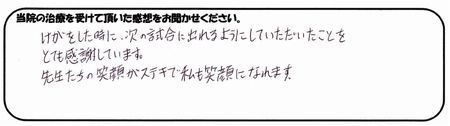 当院の治療を受けて頂いた感想をお聞かせください。
けがをした時に、次の試合に出れるようにしていただいたことを
とても感謝しています。
先生たちの笑顔がステキで私も笑顔になれます